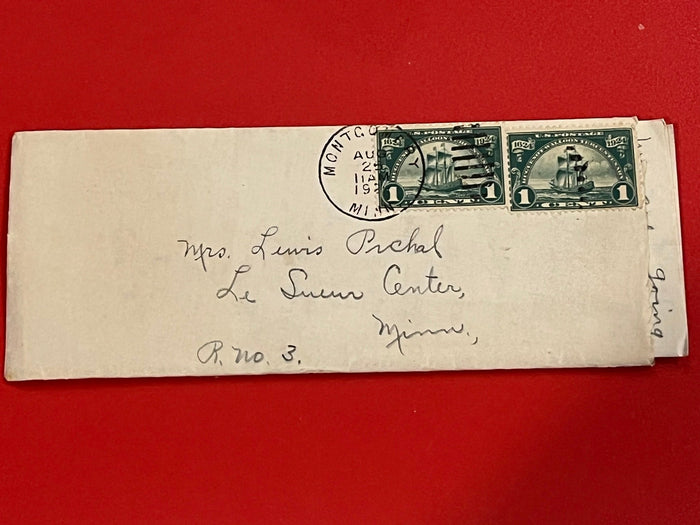 MONTGOMERY
AUG
2
11A
19
MINN
U.S. POSTAGE
1624 1924
HUGUENOT WALLOON TERCENTENARY
1 CENT 1
U.S. POSTAGE
1624 1924
HUGUENOT WALLOON TERCENTENARY
1 CENT 1
Mrs. Lewis Prchal
Le Sueur Center,
Minn.,
R. No. 3.
going